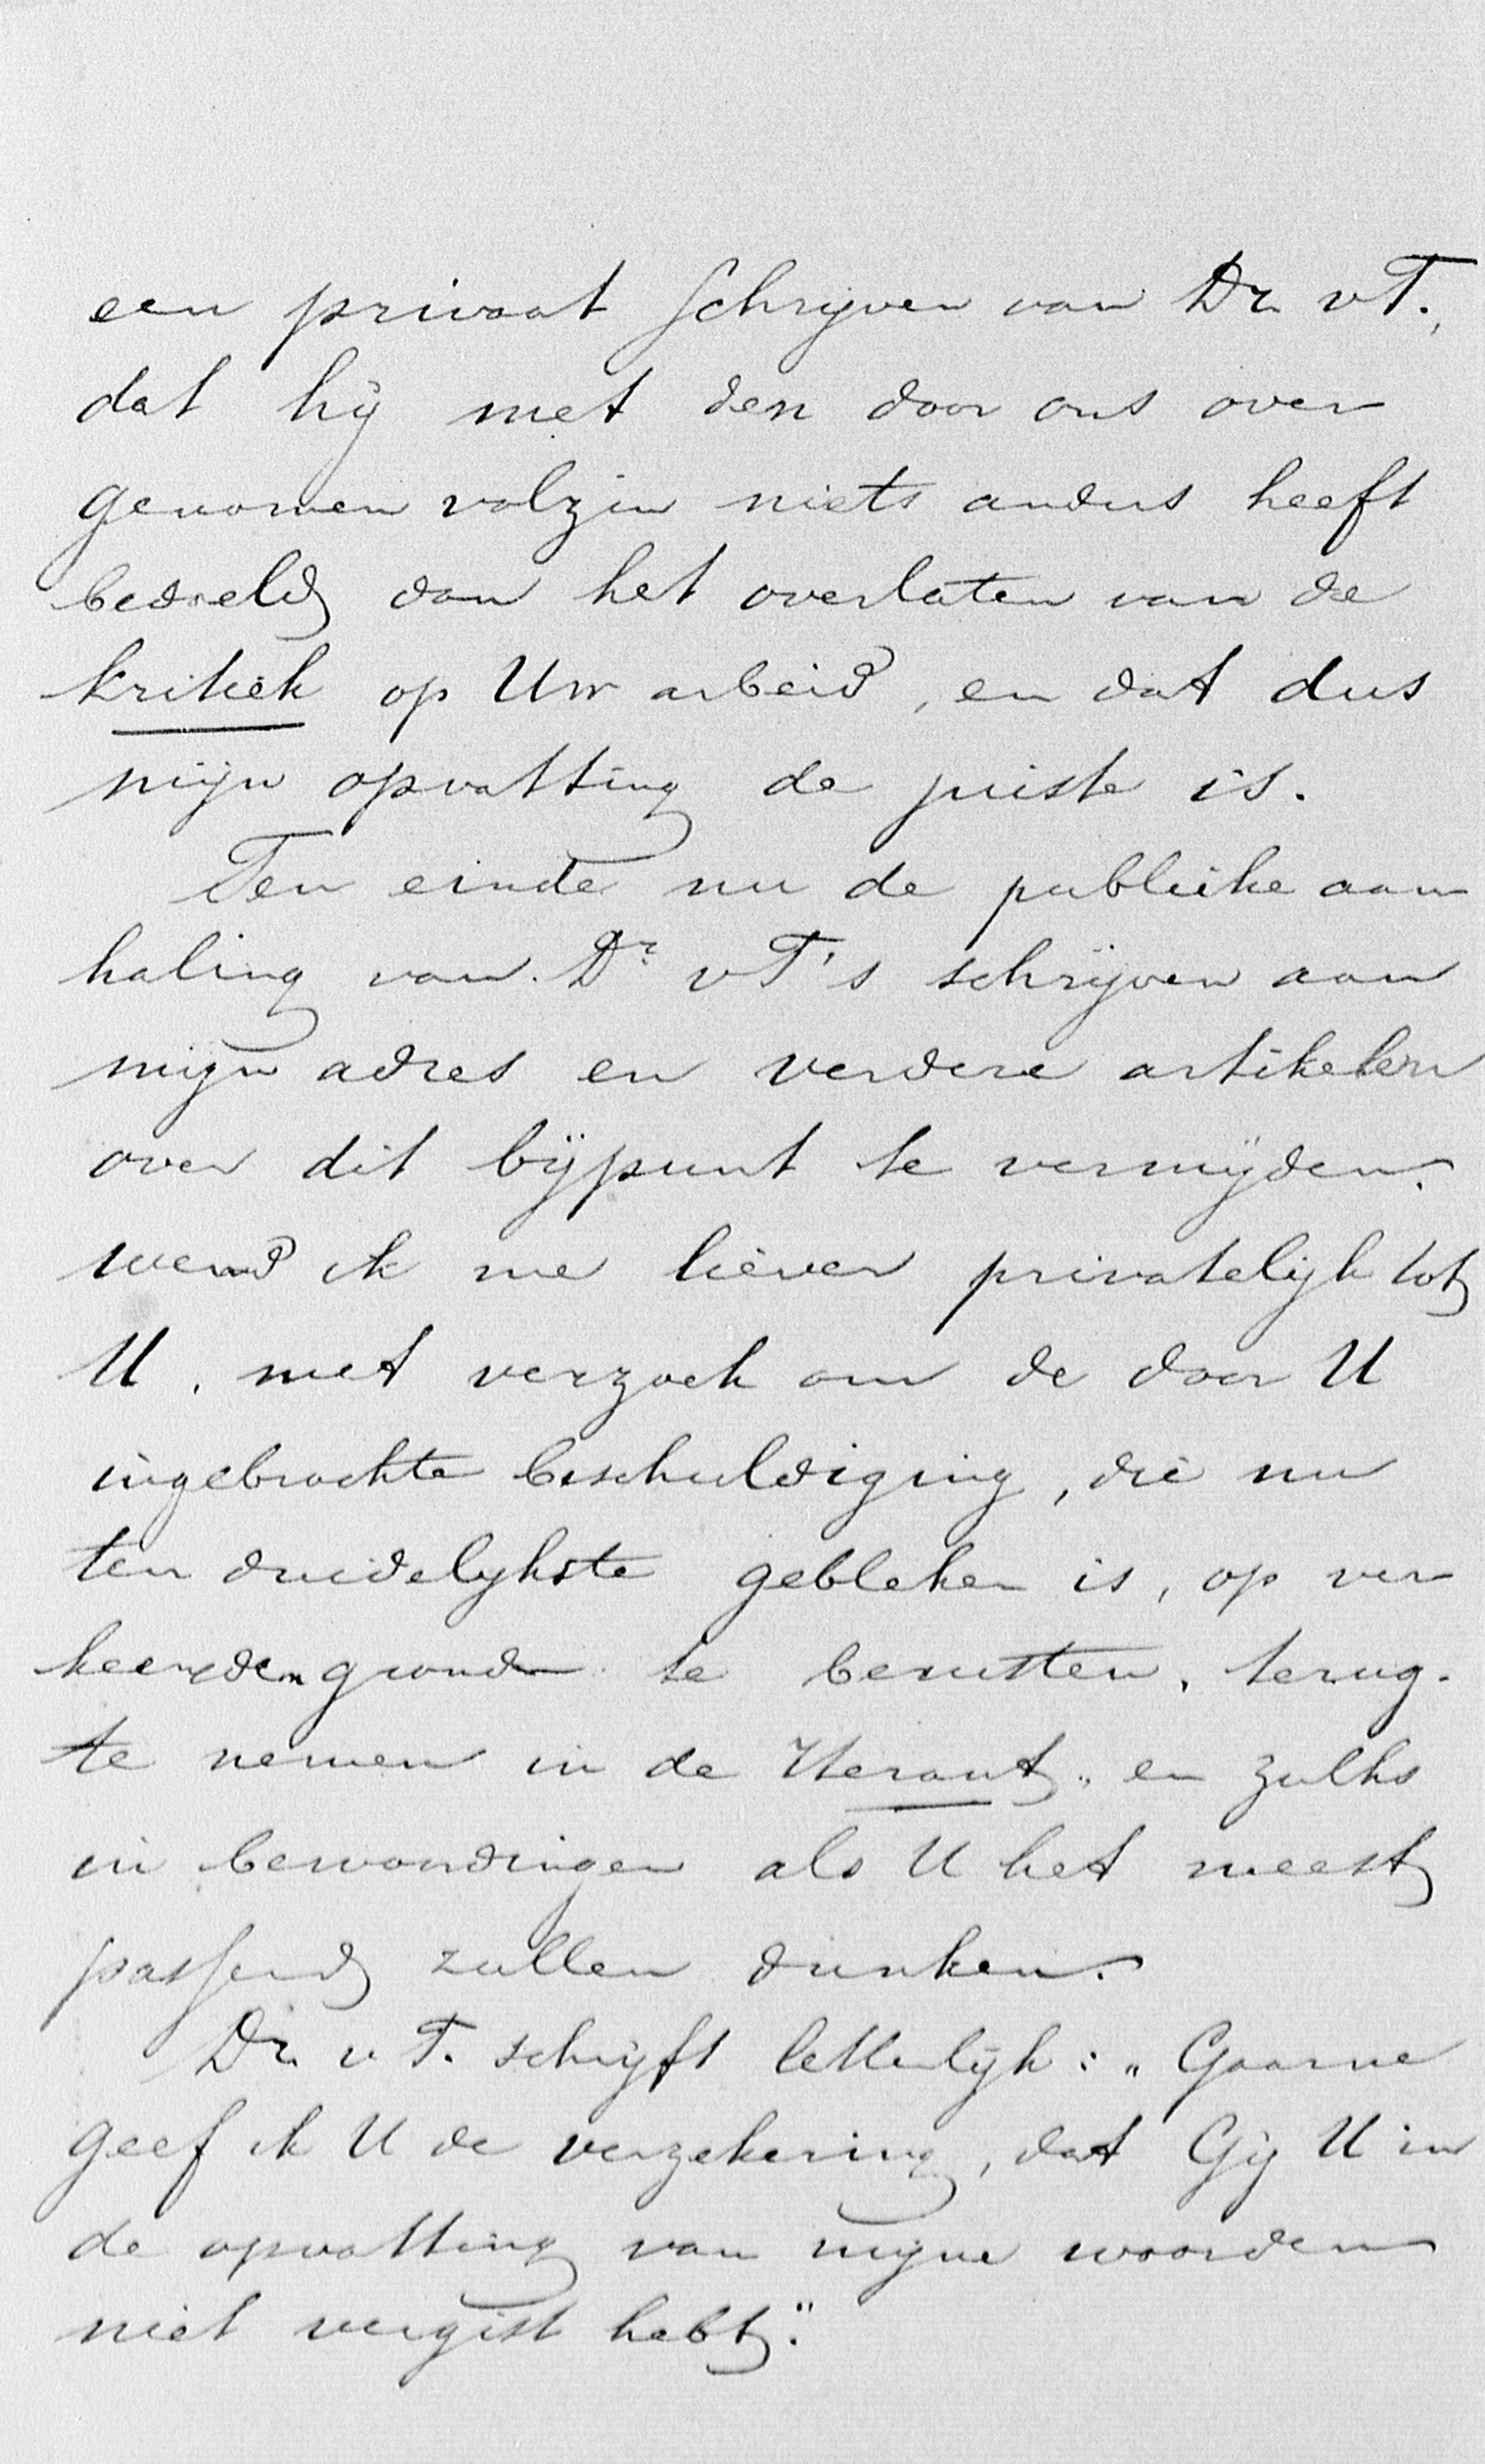 een privaat schrijven van Dr. v T.,
dat hij met den door ons over
genomen volzin niets anders heeft
bedoeld dan het overlaten van de
kritiek op Uw arbeid, en dat dus
mijn opvatting de juiste is.
Ten einde nu de publieke aan
haling van Dr v T's schrijven aan
mijn adres en verdere artikelen
over dit bijpunt te vermijden.
wend ik me liever privatelijk tot
U, met verzoek om de door U
ingebrachte beschuldiging, die nu
ten duidelijkste gebleken is, op ver
keerden grond te berusten, terug-
te nemen in de Heraut, en zulks
in bewoordingen als U het meest
passend zullen dunken.
Dr. v T. schrijft letterlijk: „Gaarne
geef ik U de verzekering, dat Gij U in
de opvatting van mijne woorden
niet vergist hebt."